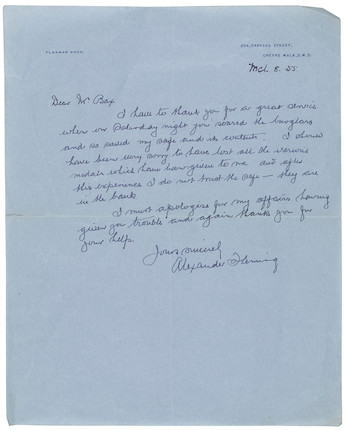 FLAXMAN
DANVERS STREET,
CHEYNE WALK, S.W.3.
Mch. 8. 55
Dear Mr Bax
I have to thank you for a great service
when on Saturday night you scared the burglars
and so saved my safe and its contents. I should
have been very sorry to have lost all the various
medals which have been given to me and after
this experience I do not trust the safe — they are
in the bank
I must apologise for my affairs having
given you trouble and again thank you for
your help.
Yours sincerely
Alexander Fleming